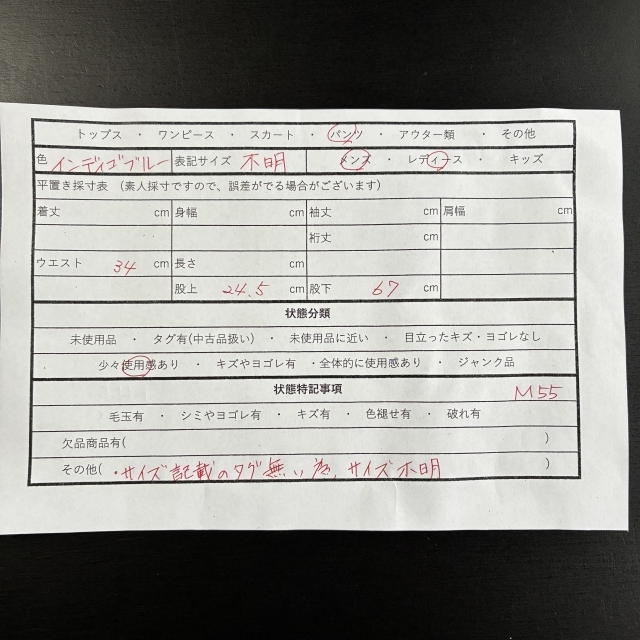 トップス ・ ワンピース ・ スカート ・ パンツ ・ アウター類 ・ その他
色 インディゴブルー 表記サイズ 不明 メンズ ・ レディース ・ キッズ
平置き採寸表 (素人採寸ですので、誤差がでる場合がございます)
着丈 cm 身幅 cm 袖丈 cm 肩幅 cm
裄丈 cm
ウエスト 34 cm 長さ cm
股上 24.5 cm 股下 67 cm
状態分類
未使用品 ・ タグ有(中古品扱い) ・ 未使用に近い ・ 目立ったキズ・ヨゴレなし
少々使用感あり ・ キズやヨゴレ有 ・全体的に使用感あり ・ ジャンク品
状態特記事項 M55
毛玉有 ・ シミやヨゴレ有 ・ キズ有 ・ 色褪せ有 ・ 破れ有
欠品商品有( )
その他( ・サイズ記載のタグ無い為、サイズ不明 )